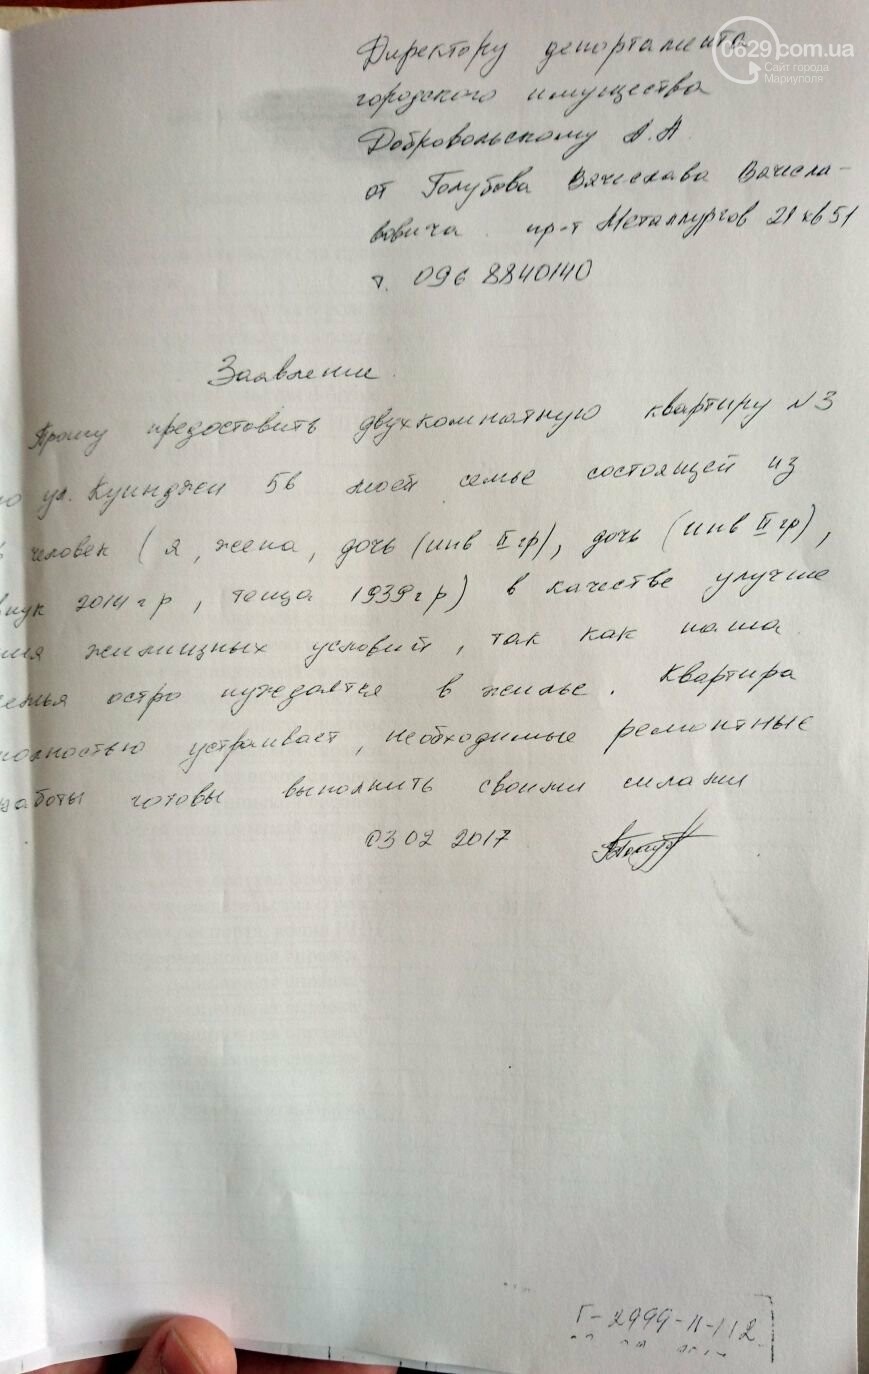 0629.com.ua
Сайт города
Мариуполя
Директору депортамента
городского имущества
Добровольскому А.А.
от Голубова Вячеслава Вачесла-
вовича. пр-т Металлургов 21 кв 51
т. 096 8840140
Заявление.
Прошу предоставить двухкомнатную квартиру N3
ул. Куинджи 5в моей семье состоящей из
человек (я, жена, дочь (инв II гр), дочь (инв II гр),
внук 2014 г р, теща 1939 г р) в качестве улучше
ния жилищных условий, так как наша
семья остро нуждается в жилье. Квартира
полностью устраивает, необходимые ремонтные
работы готовы выполнить своими силами
03 02 2017
Г-2999-11-112